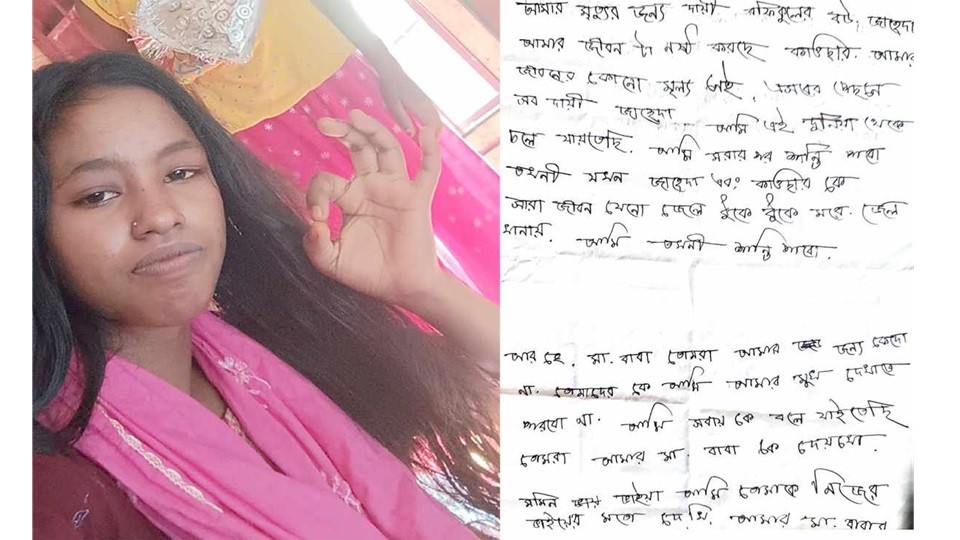 আমার মৃত্যুর জন্য দায়ী রফিকুলের জাহেদা
আমার জীবন টা নষ্ট করছে কাওছার. আমার
জীবনের কোনো মূল্য নাই. এসবের পেছনে
সব দায়ী জাহেদা আমি এই দুনিয়া থেকে
চলে যায়তেছি. আমি মরার পর শান্তি পাবো
তখনী যখন জাহেদা এবং কাওছার কে
সারা জীবন যেনো জেলে ধুঁকে ধুঁকে মরে. জেল
খানায়. আমি তখনী শান্তি পাবো.
আর হে. মা. বাবা তোমরা আমার জন্য কেদো
না. তোমাদের কে আমি আমার মুখ দেখাতে
পারবো না. আমি সবায় কে বলে যাইতেছি
তোমরা আমার মা. বাবা কে দেখো.
মমিন ভাইয়া আমি তোমাকে নিজের
ভাইয়ের মতো দেখি. আমার মা. বাবার